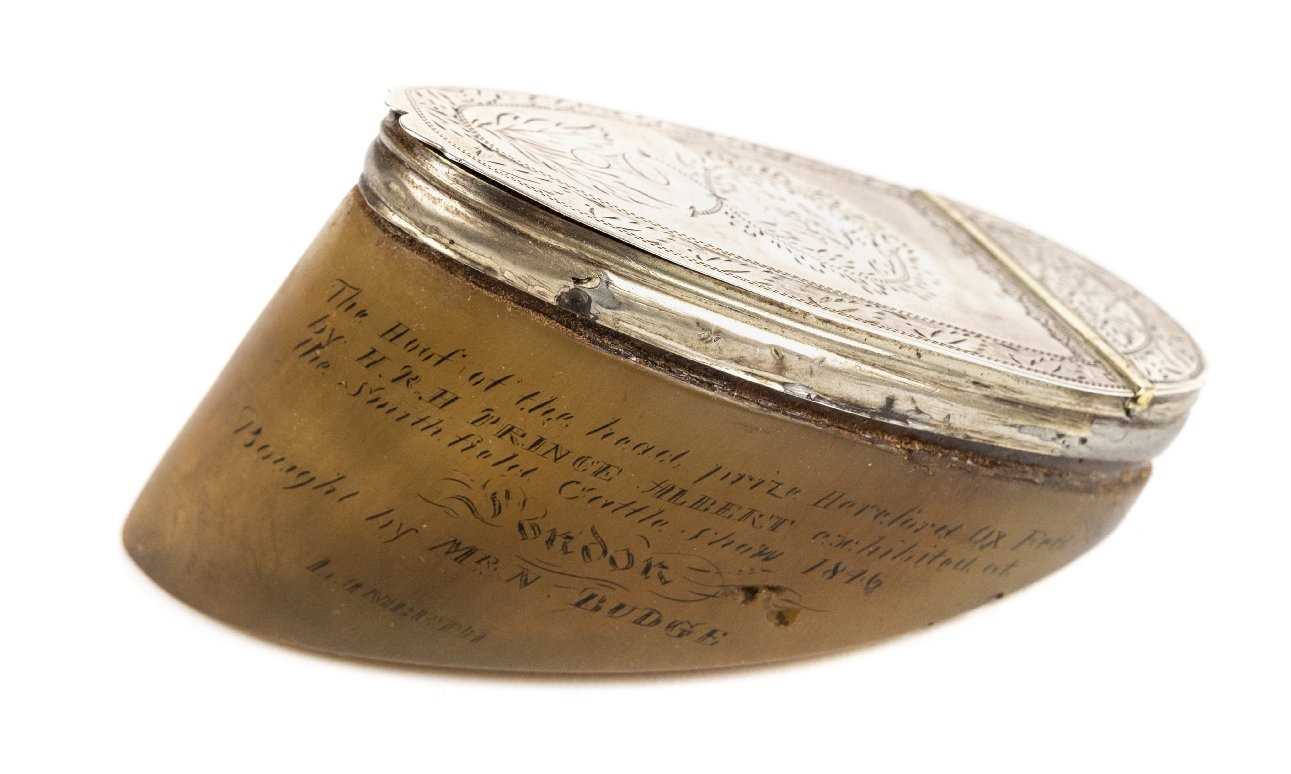 The Hoof of the head prize Hereford OX Feed
by H.R.H PRINCE ALBERT exhibited at
the Smithfield Cattle Show 1846
London
Bought by MR N BUDGE